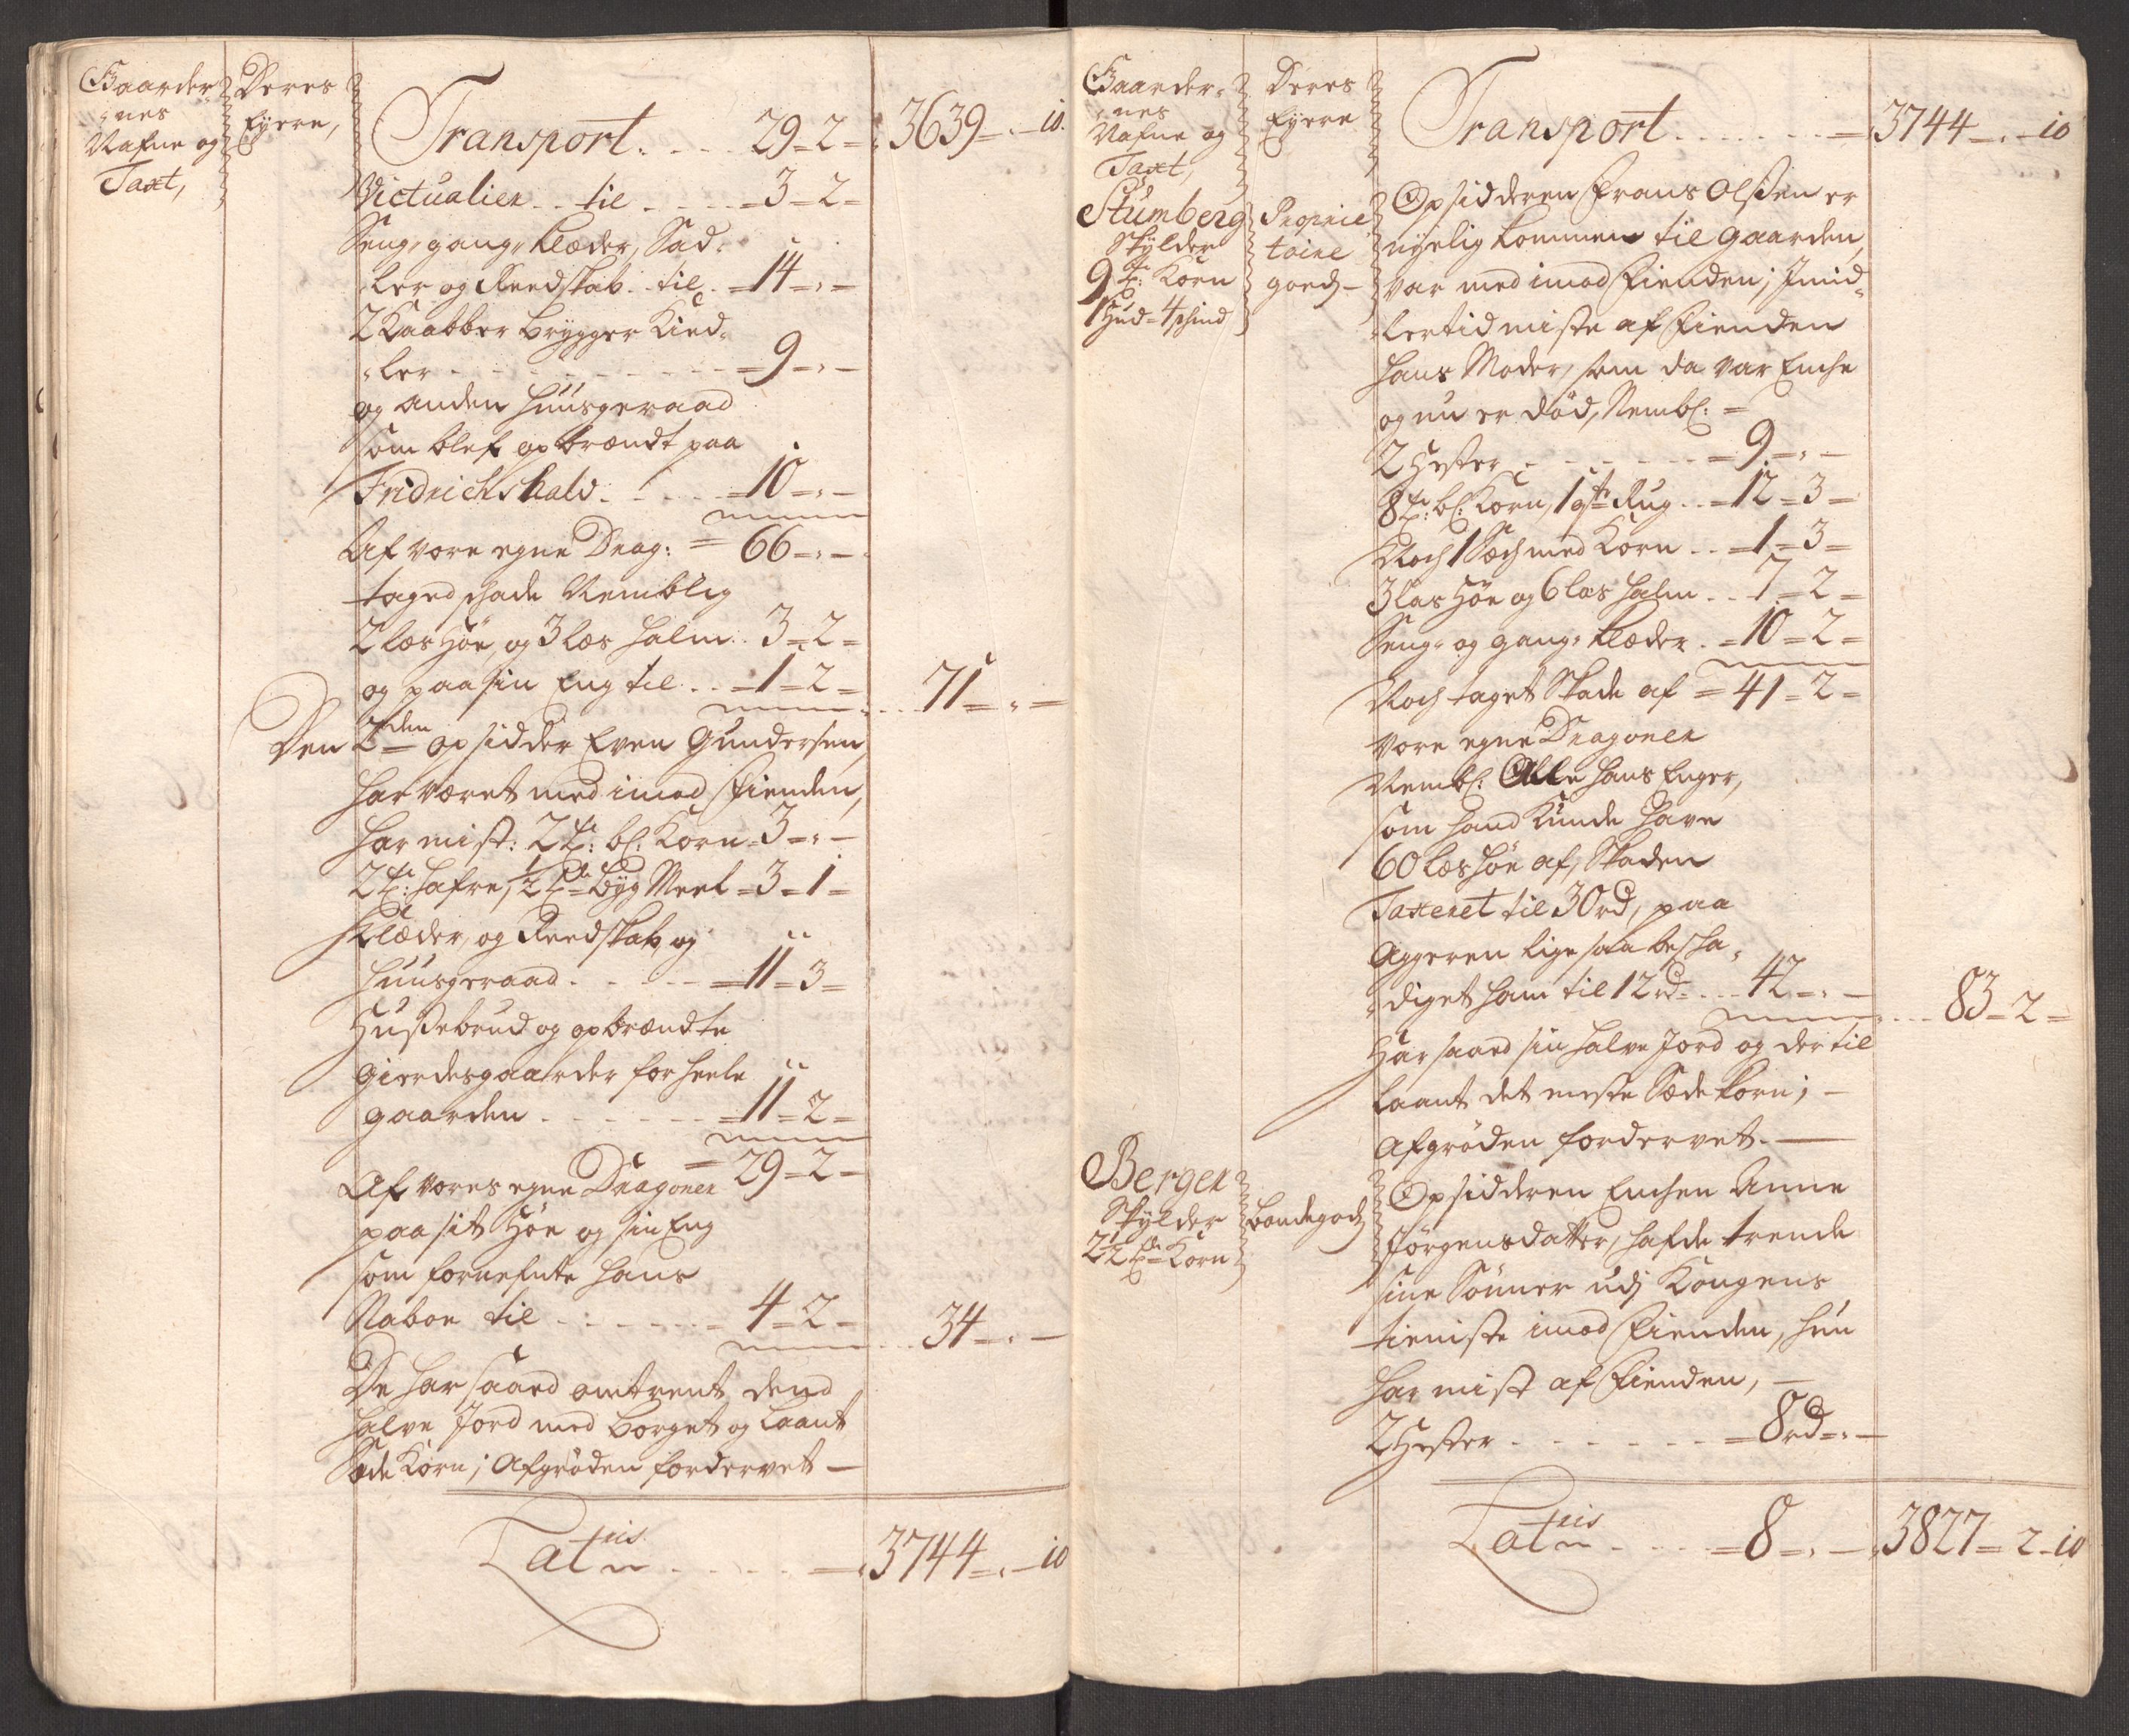 Gaarder-
nes
Nafne og
Taxt,
Deres
Eyere,
Transport. . . . 29-2- 3639-.-10.
Victualier . . til . . . . 3-2-
Seng, gang, klæder, Sad-
ler og Reedskab . . til . 14-.-
2 Kaabber brygger Kied-
ler . . . . . . . 9-.-
og anden huusgeraad
som blef opbrændt paa
Fridrichshald . . . . 10-.-
Af vore egne Drag: = 66-.-
taged schade Nemblig
2 læs Höe, og 3 læs halm . . 3-2-
og paa sin Eng til . . 1-2- . . 71-.-
Den 2den opsidder Even Gundersen,
har været med imod Fienden,
har mist: 2 T: bl: Korn 3-.-
2 T: hafre, ½ T: Byg Meel 3-1-
Klæder, og Reedskab, og
huusgeraad . . . . 11-3-
Hussebrud og opbrændte
gierdesgaarder for heele
gaarden . . . . . 11-2-
29-2-
Af vores egne Dragoner
paa sit Höe og sin Eng
som fornefnte hans
Naboe til . . . . . 4-2- . . 34-.-
De har saaed omtrent dend
halve Jord med borget og laant
Sæde Korn; Afgröden fordervet —
Latris . . . . . 3744-.-10
Gaarder-
nes
Nafne og
Taxt,
Deres
Eyere
Transport . . . . . . 3744-.-10
Stumberg
Skylder
9 T: Korn
1 Hud- 4 schind
Proprie-
taire
goedz-
Opsidderen Frans Olssen er
nyelig kommen til gaarden,
var med imod Fienden; Jmid-
lertid miste af Fienden
hans Moder, som da var Enche
og nu er död, Nembl: =
2 Hester . . . . . . 9.-.-
8 T: bl: Korn, 1 qtr Rug . . 12-3-
Noch 1 Sech med Korn . . 1-3-
3 læs Höe og 6 læs halm . . 7-2-
Seng- og gang- klæder . 10-2-
Noch taget Skade af = 41-2-
vore egne Dragoner
Nembl: Alle hans Enger,
som hand kunde have
60 læs höe af, Skaden
Taxeret til 30 rd, paa
Aggeren lige saa bescha-
diget ham til 12 rd . . . 42-.- . . . 83-2-
Har saaed sin halve Jord og der til
laant det meste Sædekorn; —
Afgröden fordervet. —
Berger
Skylder
2½ T: Korn
bondegodz
Opsidderen Enchen Anne
Jörgensdatter, hafde trende
sine Sönner udj Kongens
tieniste imod Fienden, hun
har mist af Fienden, —
2 Hester . . . . . . . 8 rd-.-
Latris . . . . 8-.- 3827-2-10